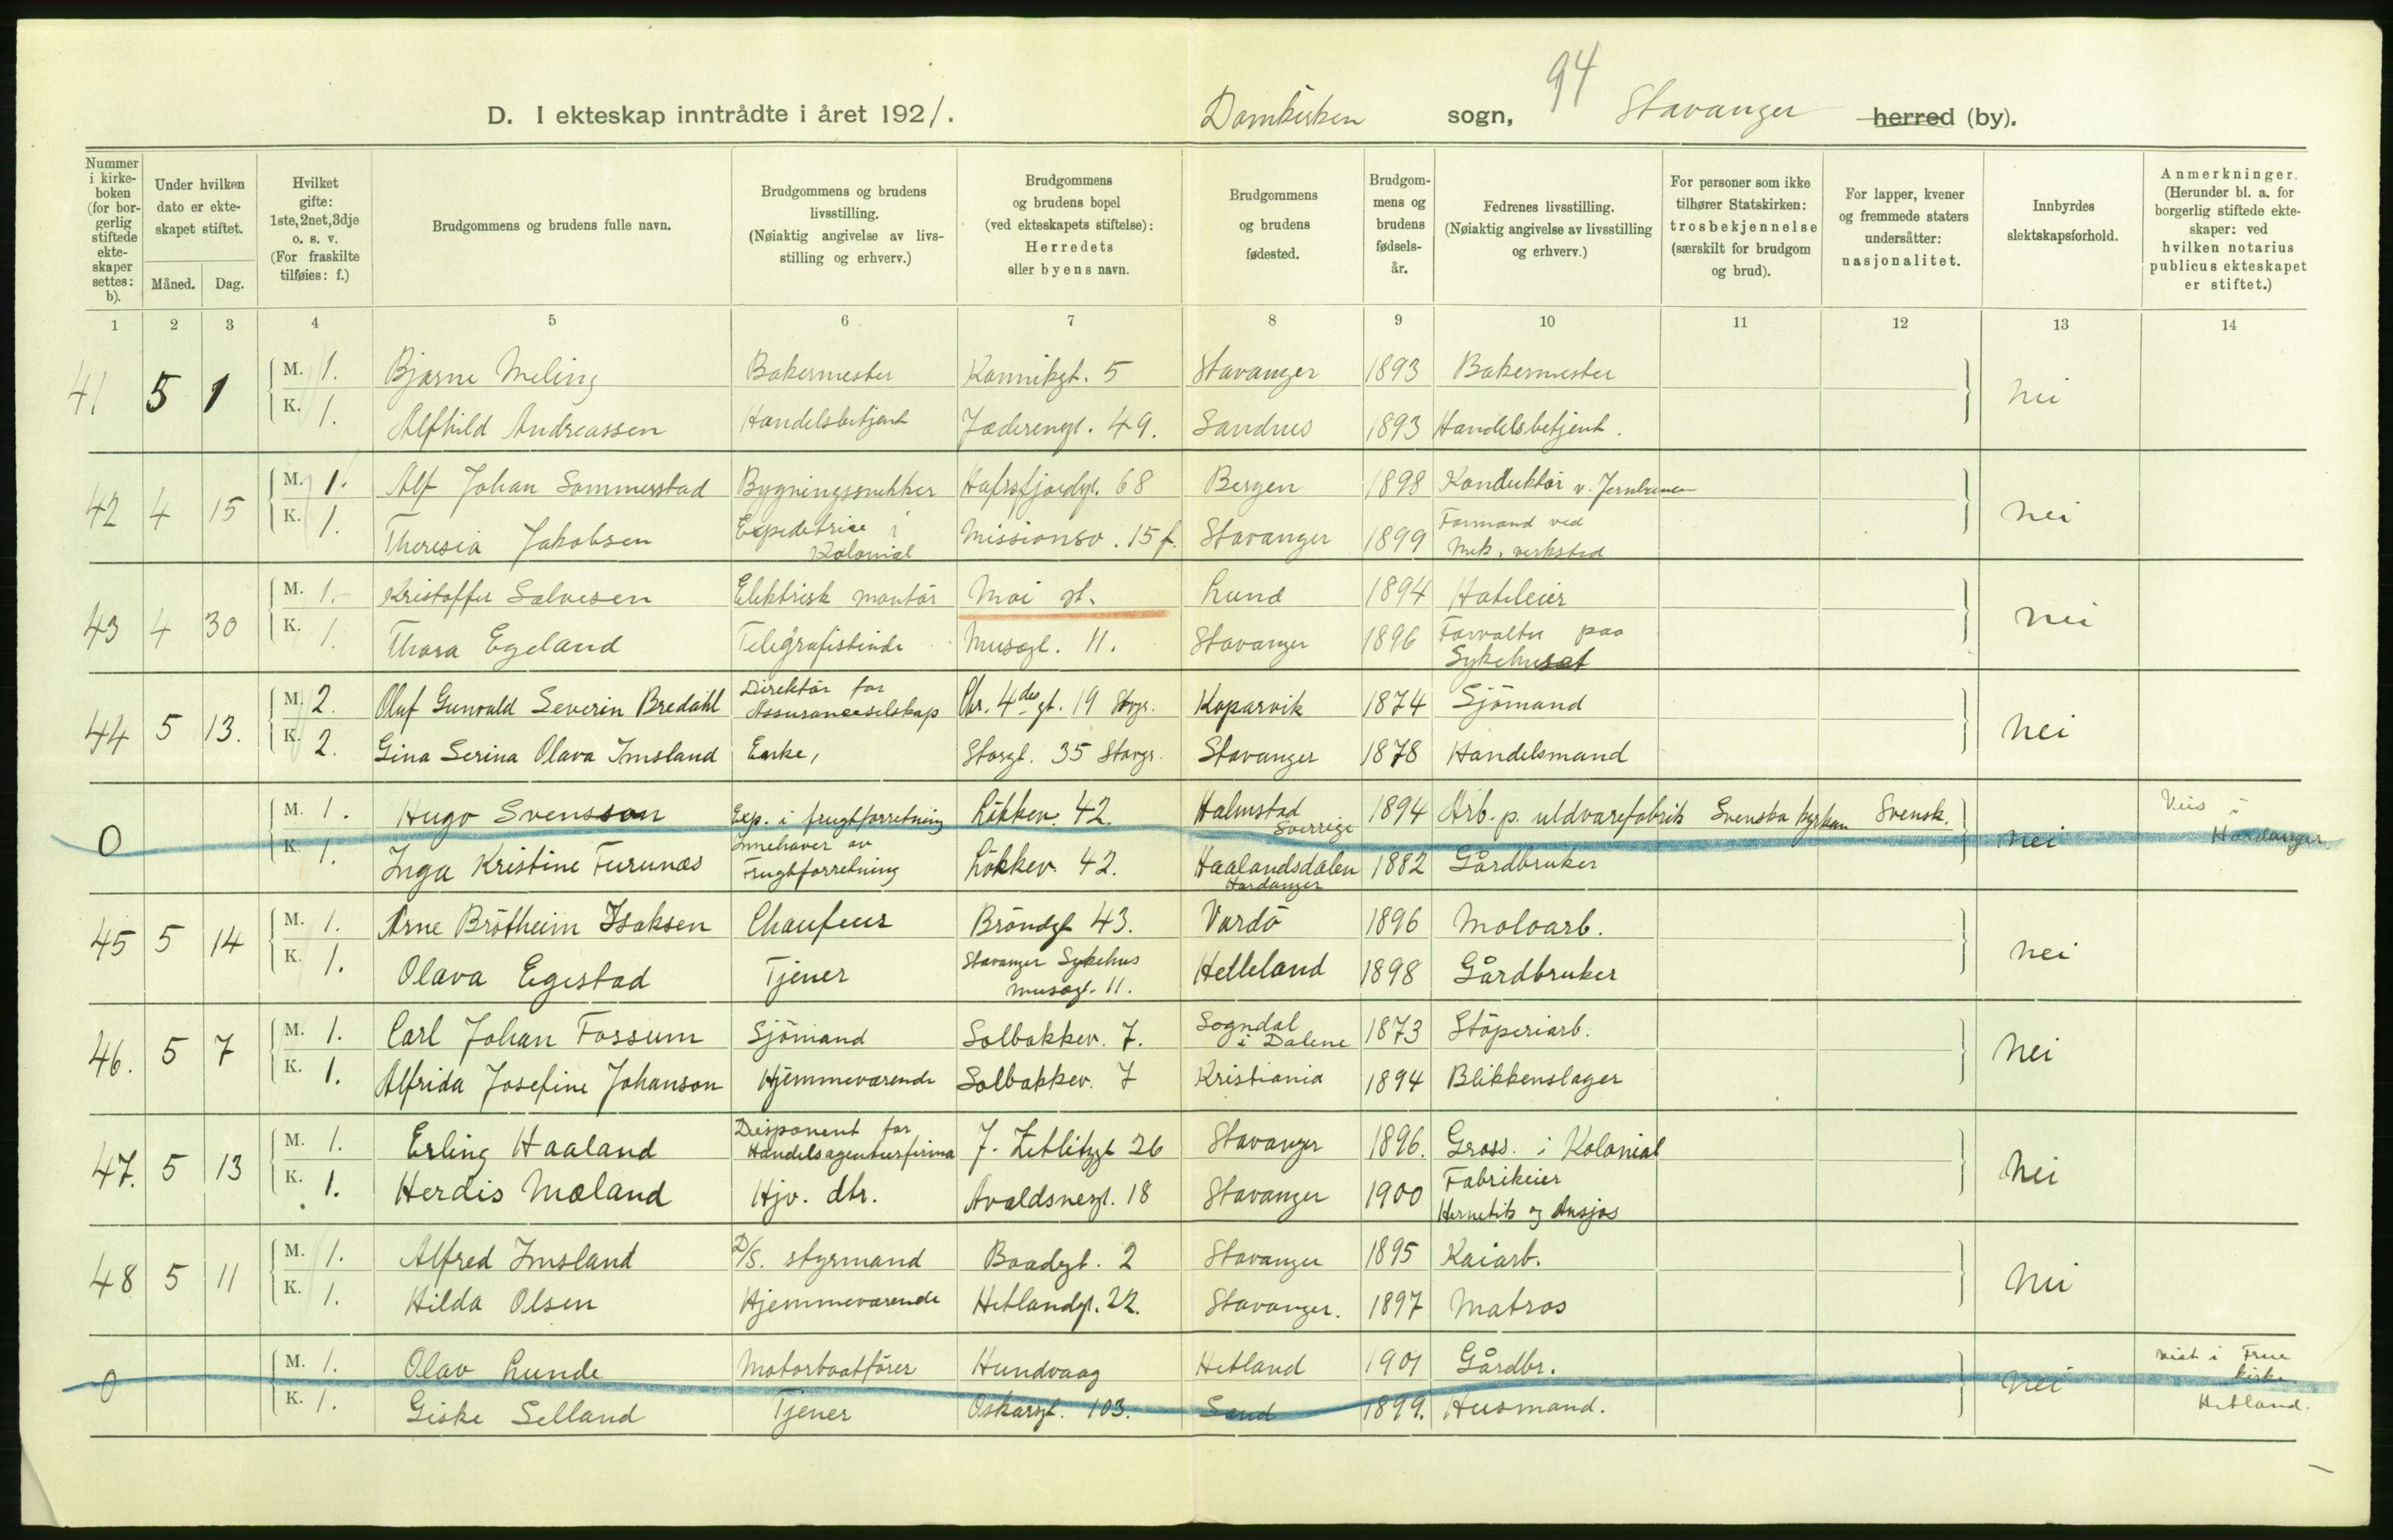 D. I ekteskap inntrådte i året 1921. Domkirken sogn, 94 Stavanger herred (by).
Nummer i kirkeboken (for borgerlig stiftede ekteskaper settes: b).
Under hvilken dato er ekteskapet stiftet.
Måned. Dag.
Hvilket gifte: 1ste, 2net, 3dje o. s. v. (For fraskilte tilføies: f.)
Brudgommens og brudens fulle navn.
Brudgommens og brudens livsstilling. (Nøiaktig angivelse av livsstilling og erhverv.)
Brudgommens og brudens bopel (ved ekteskapets stiftelse): Herredets eller byens navn.
Brudgommens og brudens fødested.
Brudgommens og brudens fødselsår.
Fedrenes livsstilling. (Nøiaktig angivelse av livsstilling og erhverv.)
For personer som ikke tilhører Statskirken: trosbekjennelse (særskilt for brudgom og brud).
For lapper, kvener og fremmede staters undersåtter: nasjonalitet.
Innbyrdes slektskapsforhold.
Anmerkninger. (Herunder bl. a. for borgerlig stiftede ekteskaper: ved hvilken notarius publicus ekteskapet er stiftet.)
1 2 3 4 5 6 7 8 9 10 11 12 13 14
41 5 1 M. 1. Bjarne Meling Bakermester Kannikgt. 5 Stavanger 1893 Bakermester nei
K. 1. Alfhild Andreassen Handelsbetjent Jæderengt. 49. Sandnes 1893 Handelsbetjent.
42 4 15 M. 1. Alf Johan Sommerstad Bygningssnekker Hafrsfjordgt. 68 Bergen 1898 Konduktör v. Jernbanen nei
K. 1. Theresia Jakobsen Expeditrise i Kolonial Missionsv. 15 f. Stavanger 1899 Formand ved mek. verksted
43 4 30 M. 1. Kristoffer Salvesen Elektrisk montör Moi st. Lund 1894 Hoteleier nei
K. 1. Thora Egeland Telegrafistinde Musegt. 11. Stavanger 1896 Forvalter paa Sykehuset
44 5 13. M. 2. Oluf Gunvald Severin Bredahl Direktör for Assuranceselskap Chr. 4des gt. 19 Stvgr. Kopervik 1874 Sjömand nei
K. 2. Gina Serina Olava Imsland Enke, Storgt. 35 Stavgr. Stavanger 1878 Handelsmand
0 M. 1. Hugo Svensson Exp. i frugtforretning Lökkev. 42. Halmstad Sverrige 1894 Arb. p. uldvarefabrik Svenska kyrkan Svensk. nei Viis i Hardanger.
K. 1. Inga Kristine Furunæs Innehaver av Frugtforretning Lökkev. 42. Haalandsdalen Hardanger 1882 Gårdbruker
45 5 14 M. 1. Arne Brötheim Isaksen Chaufeur Bröndgt 43. Vardö 1896 Moloarb. nei
K. 1. Olava Egestad Tjener Stavanger Sykehus Musegt. 11. Helleland 1898 Gårdbruker
46. 5 7 M. 1. Carl Johan Fossum Sjömand Solbakkev. 7. Sogndal i Dalene 1873 Stöperiarb. nei
K. 1. Alfrida Josefine Johanson Hjemmeværende Solbakkev. 7 Kristiania 1894 Blikkenslager
47. 5 13 M. 1. Erling Haaland Disponent for Handelsagenturfirma J. Zetlitzgt 26 Stavanger 1896. Gross. i Kolonial nei
K. 1. Herdis Mæland Hjv. dtr. Avaldsnesgt. 18 Stavanger 1900 Fabrikeier Hermetik og Ansjos
48 5 11 M. 1. Alfred Imsland D/S. styrmand Baadgt. 2 Stavanger 1895 Kaiarb. nei
K. 1. Hilda Olsen Hjemmeværende Hetlandgt. 22. Stavanger. 1897 Matros
0 M. 1. Olav Lunde Motorbaatförer Hundvaag Hetland 1901 Gårdbr. nei viet i Frue kirke. Hetland.
K. 1. Giske Selland Tjener Oskarsgt. 103. Sand 1899. Husmand.